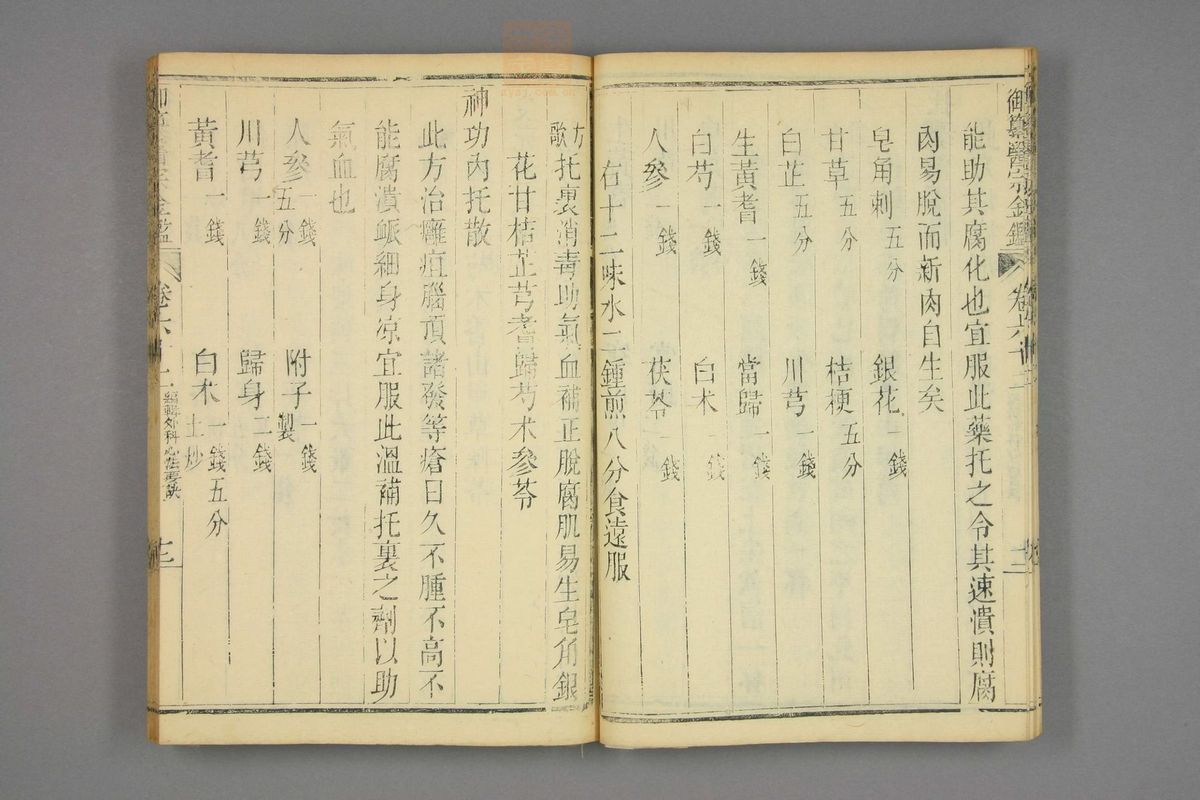 御纂醫宗金鑑
能助其腐化也宜服此藥托之令其速潰則腐
肉易脫而新肉自生矣
皂角刺五分 銀花一錢
甘草五分 桔梗五分
白芷五分 川芎一錢
生黃耆一錢 當歸一錢
白芍一錢 白朮一錢
人參一錢 茯苓一錢
右十二味水二鍾煎八分食遠服
方歌 托裏消毒助氣血補正脫腐肌易生皂角銀
花甘桔芷芎耆歸芍朮參苓
神功內托散
此方治癰疽腦項諸發等瘡日久不腫不高不
能腐潰脈細身凉宜服此溫補托裏之劑以助
氣血也
人參一錢五分 附子製一錢
川芎一錢 歸身二錢
黃耆一錢 白朮土炒一錢五分
編輯外科心法要訣